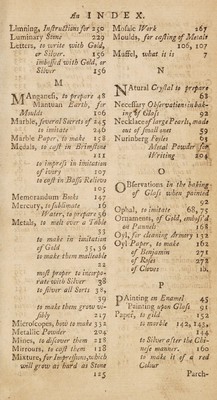 An INDEX.
Limning, Instructions for 250
Luminary Stone 229
Letters, to write with Gold,
or Silver. 156
imbossed with Gold, or
Silver 156
M
Manganese, to prepare 48
Mantuan Earth, for
Moulds 106
Marble, several Secrets of 245
to imitate 246
Marble Paper, to make 158
Medals, to cast in Brimstone
111
to impress in imitation
of ivory 107
to cast in Basso Relievo
105
Memorandum Books 147
Mercury, to sublimate 16
Water, to prepare 56
Metals, to melt over a Table
33
to make in imitation
of Gold 35, 39
to make them malleable
22
most proper to incorpo-
rate with Silver 38
to silver all Sorts 32,
39
to make them grow vi-
sibly 227
Microscopes, how to make 332
Metallic Powder 204
Mines, to discover them 218
Mirrours, to cast them 128
Mixture, for Impressions, which
will grow as hard as Stone
125
Mosaic Work 167
Moulds, for casting of Metals
106, 107
Muffel, what it is 7
N
Natural Crystal to prepare
68
Necessary Observation in bak-
ing of Glass 92
Necklace of large Pearls, made
out of small ones 59
Nuremberg
Metal Powder for
Writing 204
O
Observations in the baking
of Glass when painted
92
Ophal, to imitate 68, 75
Ornaments, of Gold, emboss'd
on Pannels 168
Oyl, for cleaning Armory 132
Oyl Paper, to make 162
of Benjamin 271
of Roses 272
of Cloves ib.
P
Painting on Enamel 45
Painting upon Glass 91
Paper, to gild 152
to marble 142, 143,
144
to Silver after the Chi-
nese manner. 160
to make it of a red
Colour
Parch-